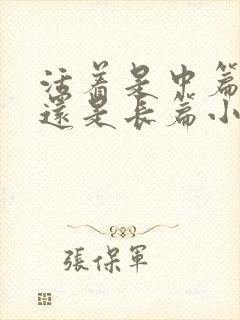 活着是中篇
還是長篇小
張保軍